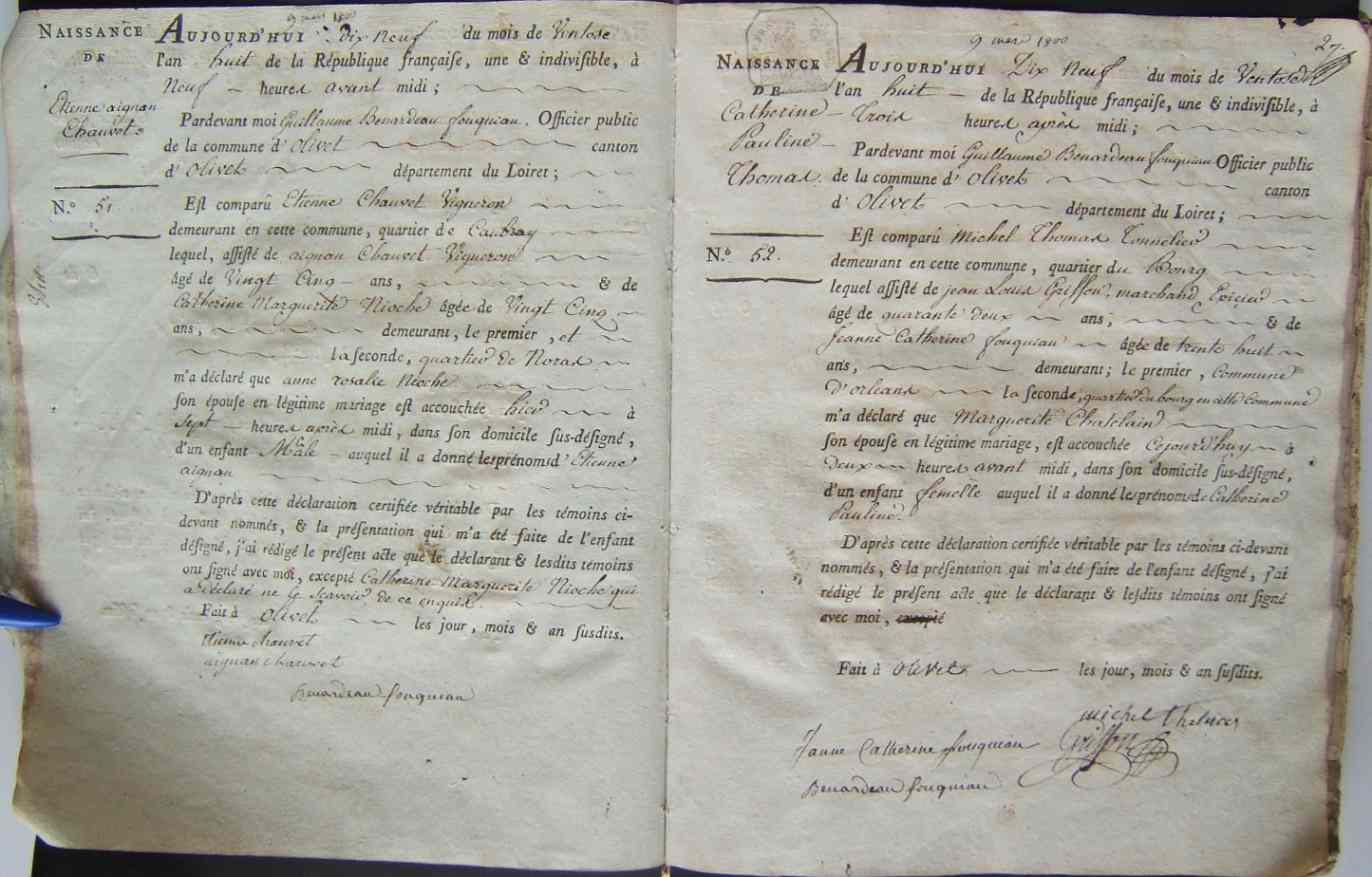 9 mars 1800
NAISSANCE
DE
Etienne aignan
Chauvet
N.º 51
AUJOURD'HUI Dix Neuf du mois de Ventose
l'an huit de la République françaiſe, une & indiviſible, à
Neuf heures avant midi ;
Pardevant moi Guillaume Benardeau fouqueau. Officier public
de la commune d'Olivet canton
d'Olivet département du Loiret ;
Eſt comparû Etienne Chauvet Vigneron
demeurant en cette commune, quartier de Caubray
lequel, aſſiſté de aignan Chauvet Vigneron
âgé de Vingt Cinq ans, & de
Catherine Marguerite Nioche âgée de Vingt Cinq
ans, demeurant, le premier, et
la ſeconde, quartier de Noras
m'a déclaré que anne rosalie Nioche
ſon épouſe en légitime mariage eſt accouchée hier à
Sept heures après midi, dans ſon domicile ſus-déſigné,
d'un enfant Mâle auquel il a donné les prénoms d'Etienne
aignan
D'après cette déclaration certifiée véritable par les témoins ci-
devant nommés, & la préſentation qui m'a été faite de l'enfant
déſigné, j'ai rédigé le préſent acte que le déclarant & leſdits témoins
ont ſigné avec moi, excepté Catherine Marguerite Nioche qui
a déclaré ne le Scavoir de ce enquis.
Fait à Olivet les jour, mois & an ſuſdits.
etienne chauvet
aignan chauvet
Benardeau fouqueau
9 mars 1800
27.
NAISSANCE
DE
Catherine
Pauline
Thomas.
N.º 52.
AUJOURD'HUI Dix Neuf du mois de Ventose
l'an huit de la République françaiſe, une & indiviſible, à
Trois heures après midi ;
Pardevant moi Guillaume Benardeau fouqueau Officier public
de la commune d'Olivet canton
d'Olivet département du Loiret ;
Eſt comparû Michel Thomas Tonnelier
demeurant en cette commune, quartier du Bourg
lequel aſſiſté de jean Louis Griffon, marchand Epicier
âgé de quarante Deux ans, & de
Jeanne Catherine fouqueau âgée de trente huit
ans, demeurant ; le premier, Commune
D'orleans la ſeconde, quartier du bourg en cette Commune
m'a déclaré que Marguerite Chatelain
ſon épouſe en légitime mariage, eſt accouchée Cejourd'huy à
Deux heures avant midi, dans ſon domicile ſus-déſigné,
d'un enfant femelle auquel il a donné les prénoms de Catherine
Pauline.
D'après cette déclaration certifiée véritable par les témoins ci-devant
nommés, & la préſentation qui m'a été faite de l'enfant déſigné, j'ai
rédigé le préſent acte que le déclarant & leſdits témoins ont ſigné
avec moi, excepté
Fait à Olivet les jour, mois & an ſuſdits.
michel thomas
Janne Catherine fouqueau Griffon
Benardeau fouqueau